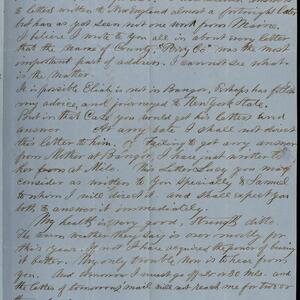 to letters written to New England almost a fortnight later
but have as yet seen not one word from Maine.
I believe I wrote to you all in about every letter
that the name of County, "Perry Co" was the most
important part of address. I can not see what
is the matter.
It is possible Elijah is not in Bangor, perhaps has followed
my advice, and journeyed to New York State.
But in that case you would get his letters and
answer At any rate I shall not direct
this letter to him. Failing to get any answer
from Mother at Bangor, I have just written to
her from at Milo. This Letter Lucy you may
consider as written to You specially & Samuel
to whom I will direct it. and shall expect you
both to answer it immediately.
My health is very good, Strength ditto.
The warm weather they say is over mostly for
this year. If not I have acquired the power of bearing
it better. My only trouble, Now is to hear from
you. And tomorrow I must go off 20 or 30 mile. and
the letter of tomorrow's mail will not reach me for two or